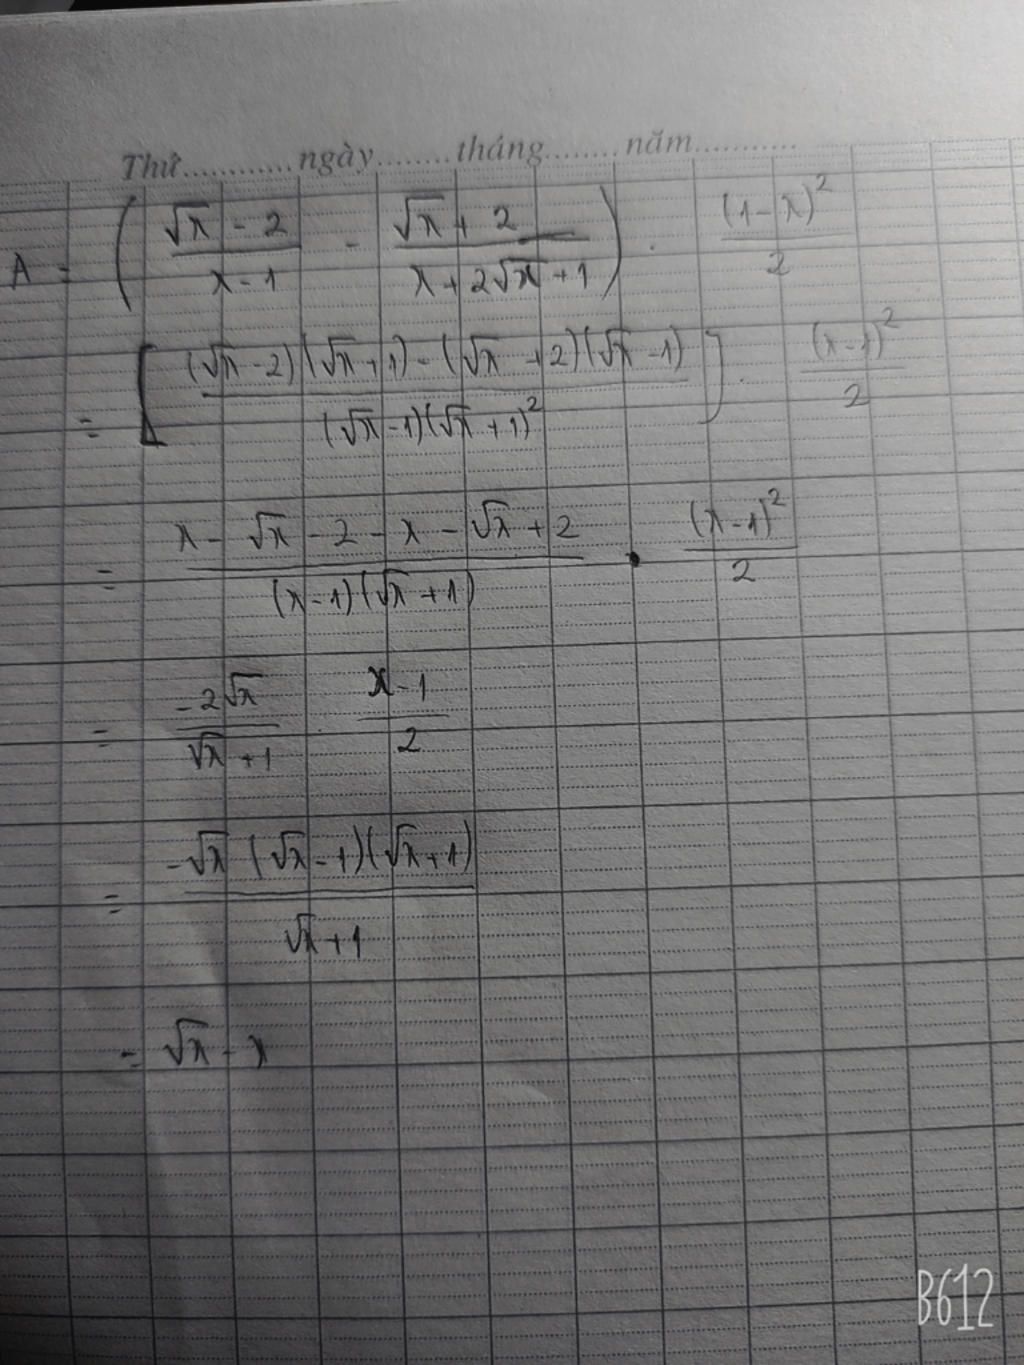 Thứ............ngày........tháng........năm...........
A = ( (√x - 2)/(x - 1) - (√x + 2)/(x + 2√x + 1) ) . (1 - x)²/2
= [ ((√x - 2)(√x + 1) - (√x + 2)(√x - 1))/((√x - 1)(√x + 1)²) ] . (x - 1)²/2
= (x - √x - 2 - x - √x + 2)/((x - 1)(√x + 1)) . (x - 1)²/2
= (-2√x)/(√x + 1) . (x - 1)/2
= (-√x (√x - 1)(√x + 1))/(√x + 1)
= √x - x
B612